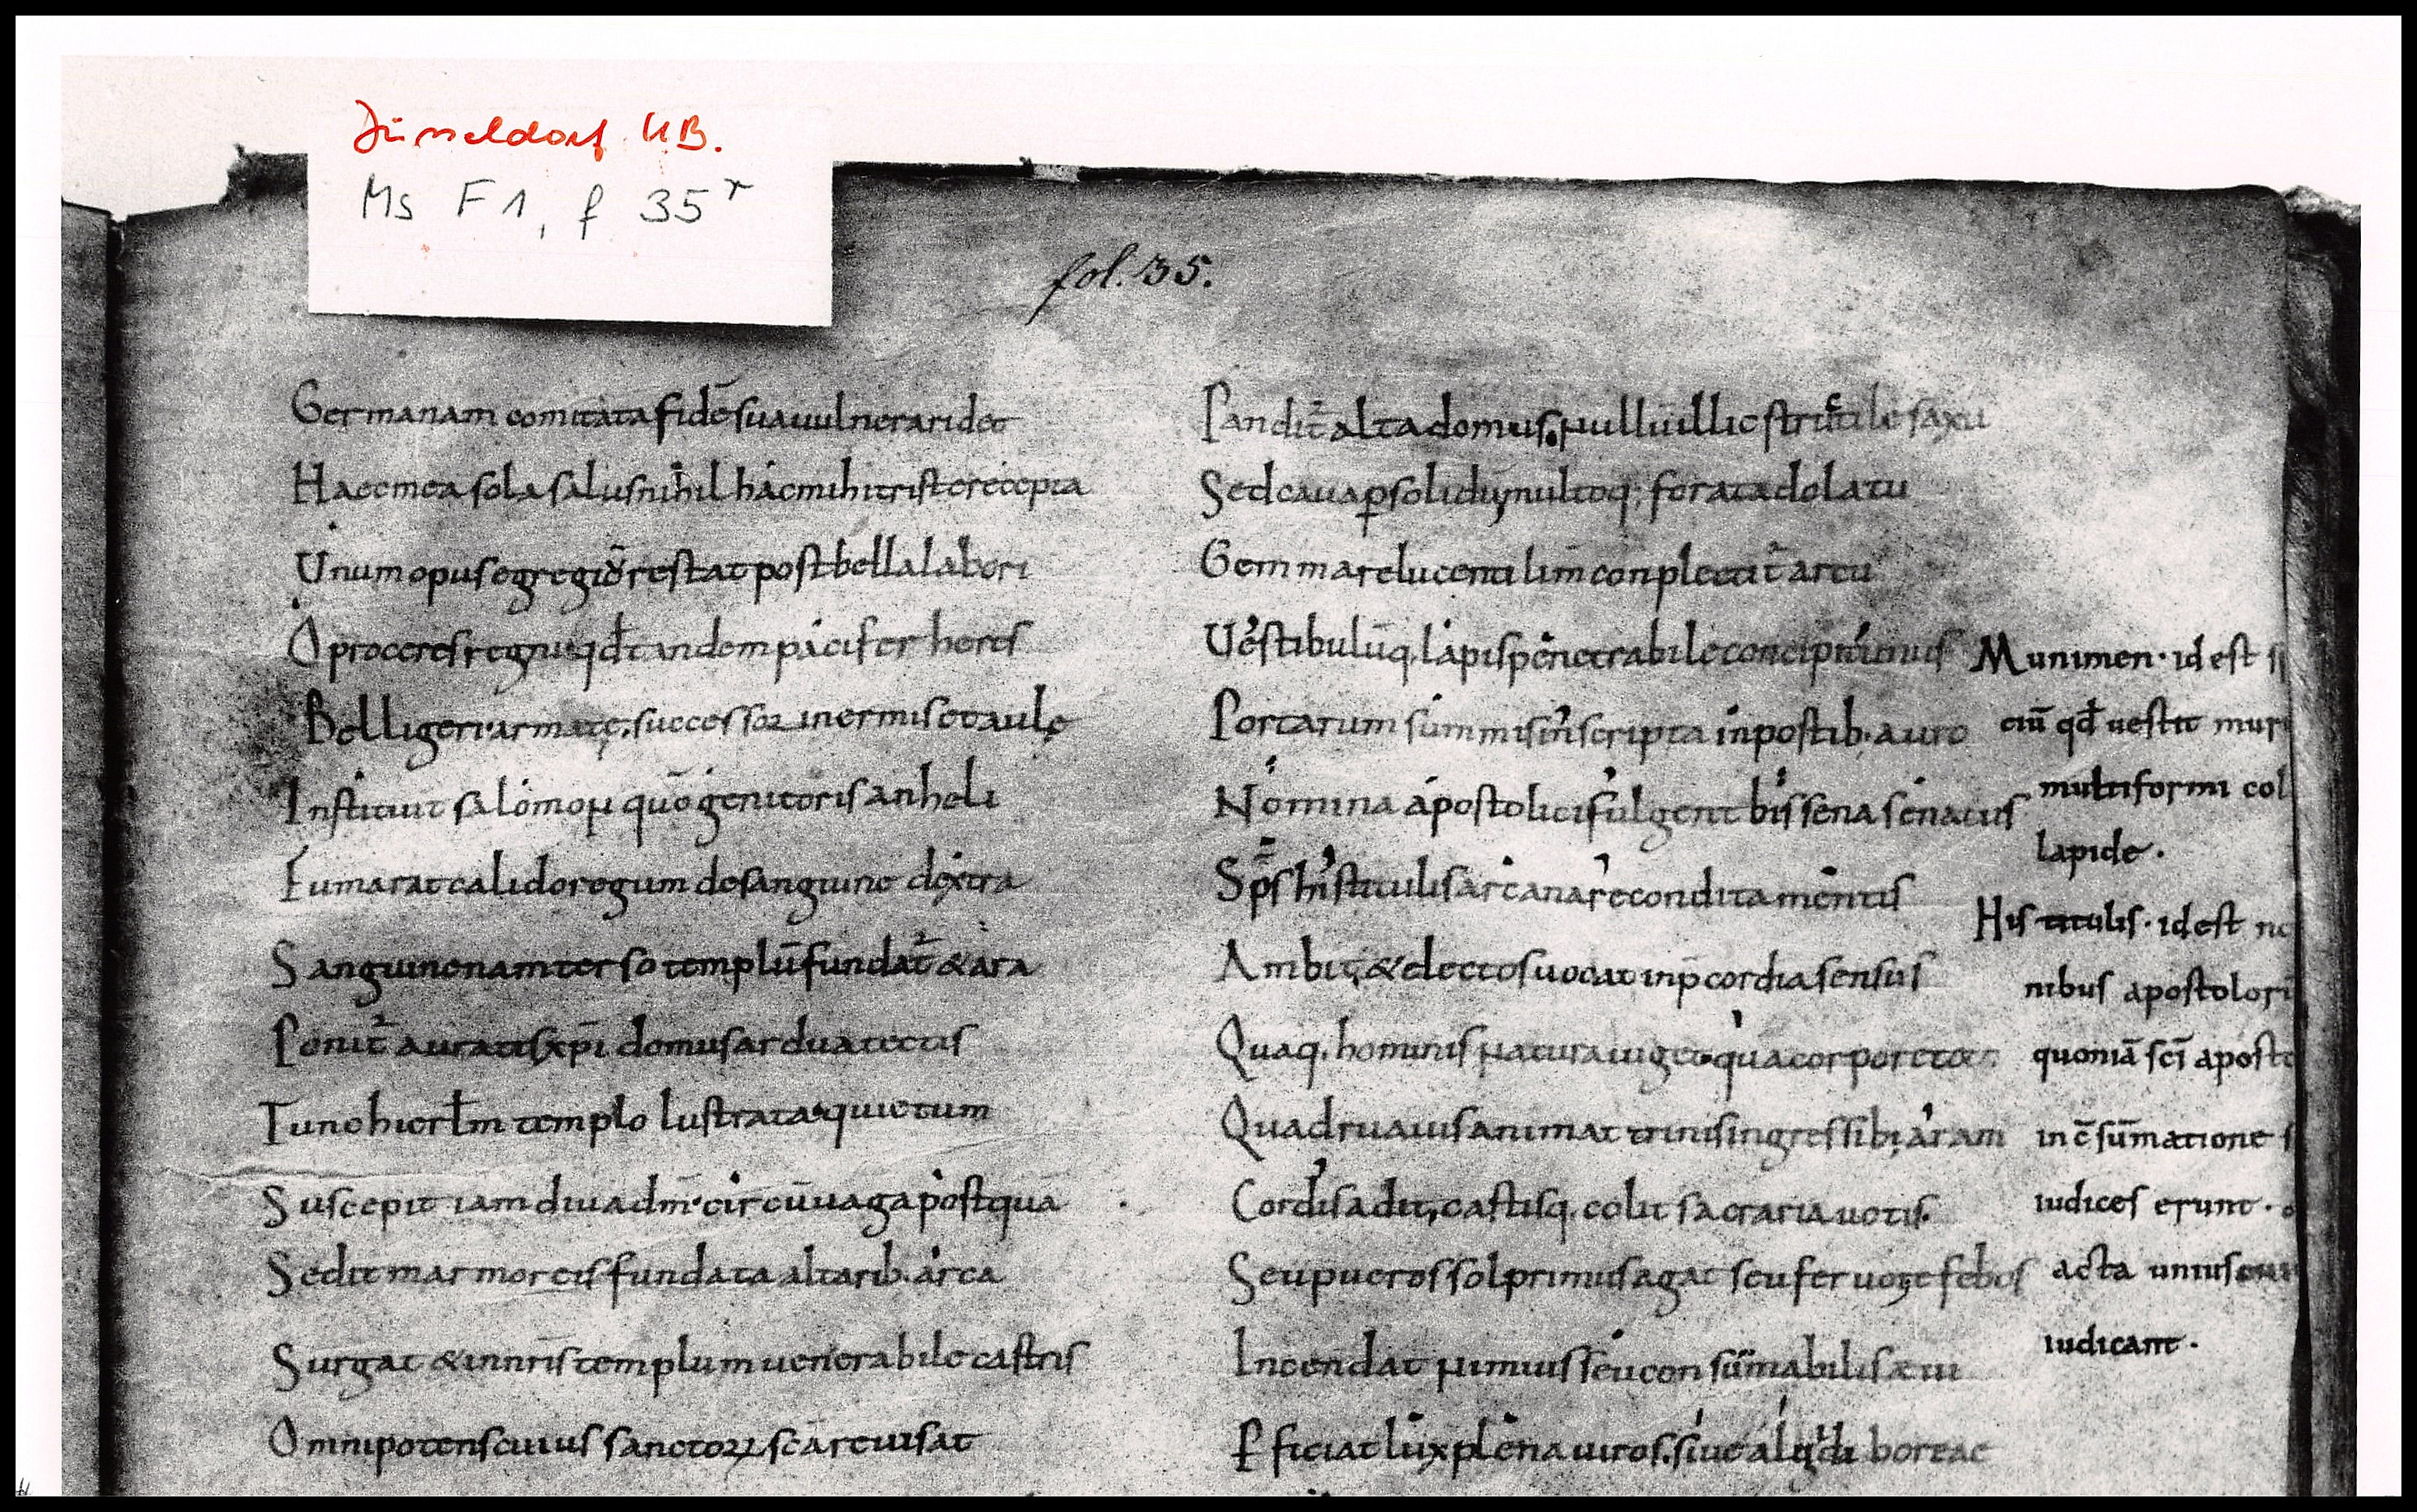 Düsseldorf UB.
Ms F1, f 35r
fol. 35.
Germanam comitata fidē sua uulnera ridet
Haec mea sola salus nihil hác mihi triste recepta
Unum opus egregiō restat post bella labori
O proceres regni qđ tandem pacifer heres
Belligeri armatę successor inermis et aulę
Instituit salomon quō genitoris anheli
Fumarat calido regum de sanguine dextra
Sanguine nam terso templū fundat̄ & ara
Ponit̄ auratis xpī domus ardua tectis
Tunc hierłm templo lustrata quietum
Suscepit iam diua dm̄ circūuaga postquā
Sedit marmoreis fundata altarib. arca
Surgat & in nr̄is templum uenerabile castris
Omnipotens cuius sanctoꝝ sca reuisat
Pandit̄ alta domus. nullū illic structile saxū
Sed caua p solidū multoq; forata dolatu
Gemma relucenti lim̄ conplectit̄ artu
Uestibulūq. lapis penetrabile concipit unus
Portarum summis in scripta in postib. auro
Nomina apostolici fulgent bis sena senatus
Sps his titulis arcana recondita mentis
Ambit, & electos uocat in p̄cordia sensus
Quaq. hominis natura uiget qua corpore toto
Quadrua uis animat trinis ingressib; aram
Cordis adit, castisq. colit sacraria uotis.
Seu pueros sol primus agat seu feruor efebos
Incendat nimius seu consūmabilis æui
Pficiat lux plena uiros. siue algida boreae
Munimen. id est
ciū qđ uestit mur
multiformi col
lapide.
His titulis. id est no
nibus apostolorū
quoniā scī aposto
in c̄sūmatione s
iudices erunt.
acta unius
iudicant.